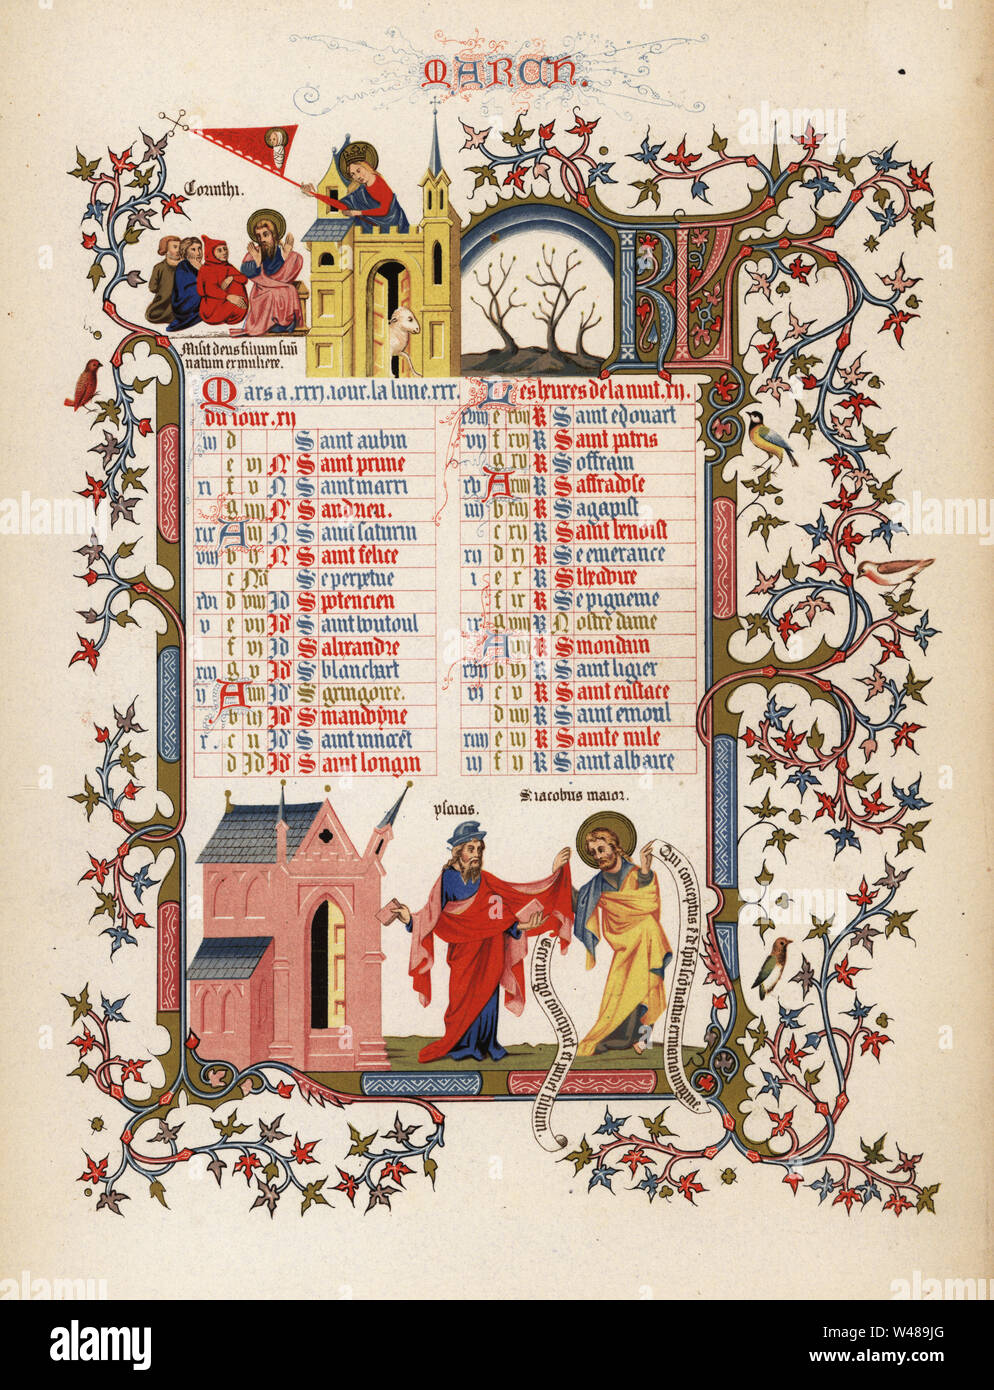 MARCH.
Corinthi.
Misit deus filium suū
natum ex muliere.
KL
Mars a .xxxj. iour. la lune .xxx.
du iour .xij
iij d Saint aubin
e vj N Saint prune
xi f v N Saint marri
g iiij N S andrieu.
xix A iij N Saint saturin
viij b ij N Saint felice
c Na Se perpetue
xvi d viij Id Spotencien
v e vij Id Saint toutoul
f vj Id Salixandre
xiij g v Id S blanchart
ij A iiij Id S gringoire.
b iij Id S mandoyne
x. c ij Id Saint innocēt
d Id Id Saint longin
Les heures de la nuit .xij.
xviij e xvij K Saint edouart
vij f xvi K Saint patris
g xv K Soffrain
xv A xiiij K Saffradose
iiij b xiij K S agapist
c xij K Saint benoist
xij d xj K Se emerance
i e x K S thadire
f ix K Se pigneme
ix g viij K Nostre dame
A vij K S mondain
xvij b vj K Saint ligier
vi c v K Saint eustace
d iiij K Saint emoul
xiiij e iij K Sainte nule
iij f ij K Saint albaire
ysaias.
S. iacobus maior.
Qui conceptus ē de spū sc̄o natus ex maria virgine.
Ecce virgo concipiet et pariet filium.
alamy
W489JG
www.alamy.com